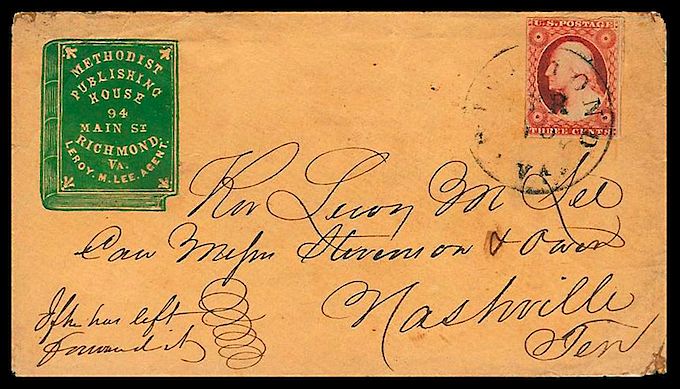 METHODIST
PUBLISHING
HOUSE
94
MAIN ST
RICHMOND,
VA.
LEROY. M. LEE. AGENT.
U.S. POSTAGE
THREE CENTS
VA.
Rev Leroy M Lee
Care Messrs Stevenson & Owen
Nashville
Ten
If he has left
Forward it